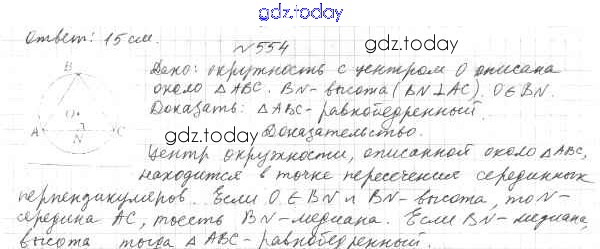 gdz.today
Ответ: 15 см.
№554
gdz.today
B
Дано: окружность с центром O описана
около △ABC. BN-высота (BN⊥AC), O∈BN.
Доказать: △ABC-равнобедренный.
gdz.today
O
A N C
Доказательство.
Центр окружности, описанной около △ABC,
находится в точке пересечения серединных
перпендикуляров. Если O∈BN и BN-высота, то N-
середина AC, тоесть BN-медиана. Если BN-медиана,
высота тогда △ABC-равнобедренный
gdz.today